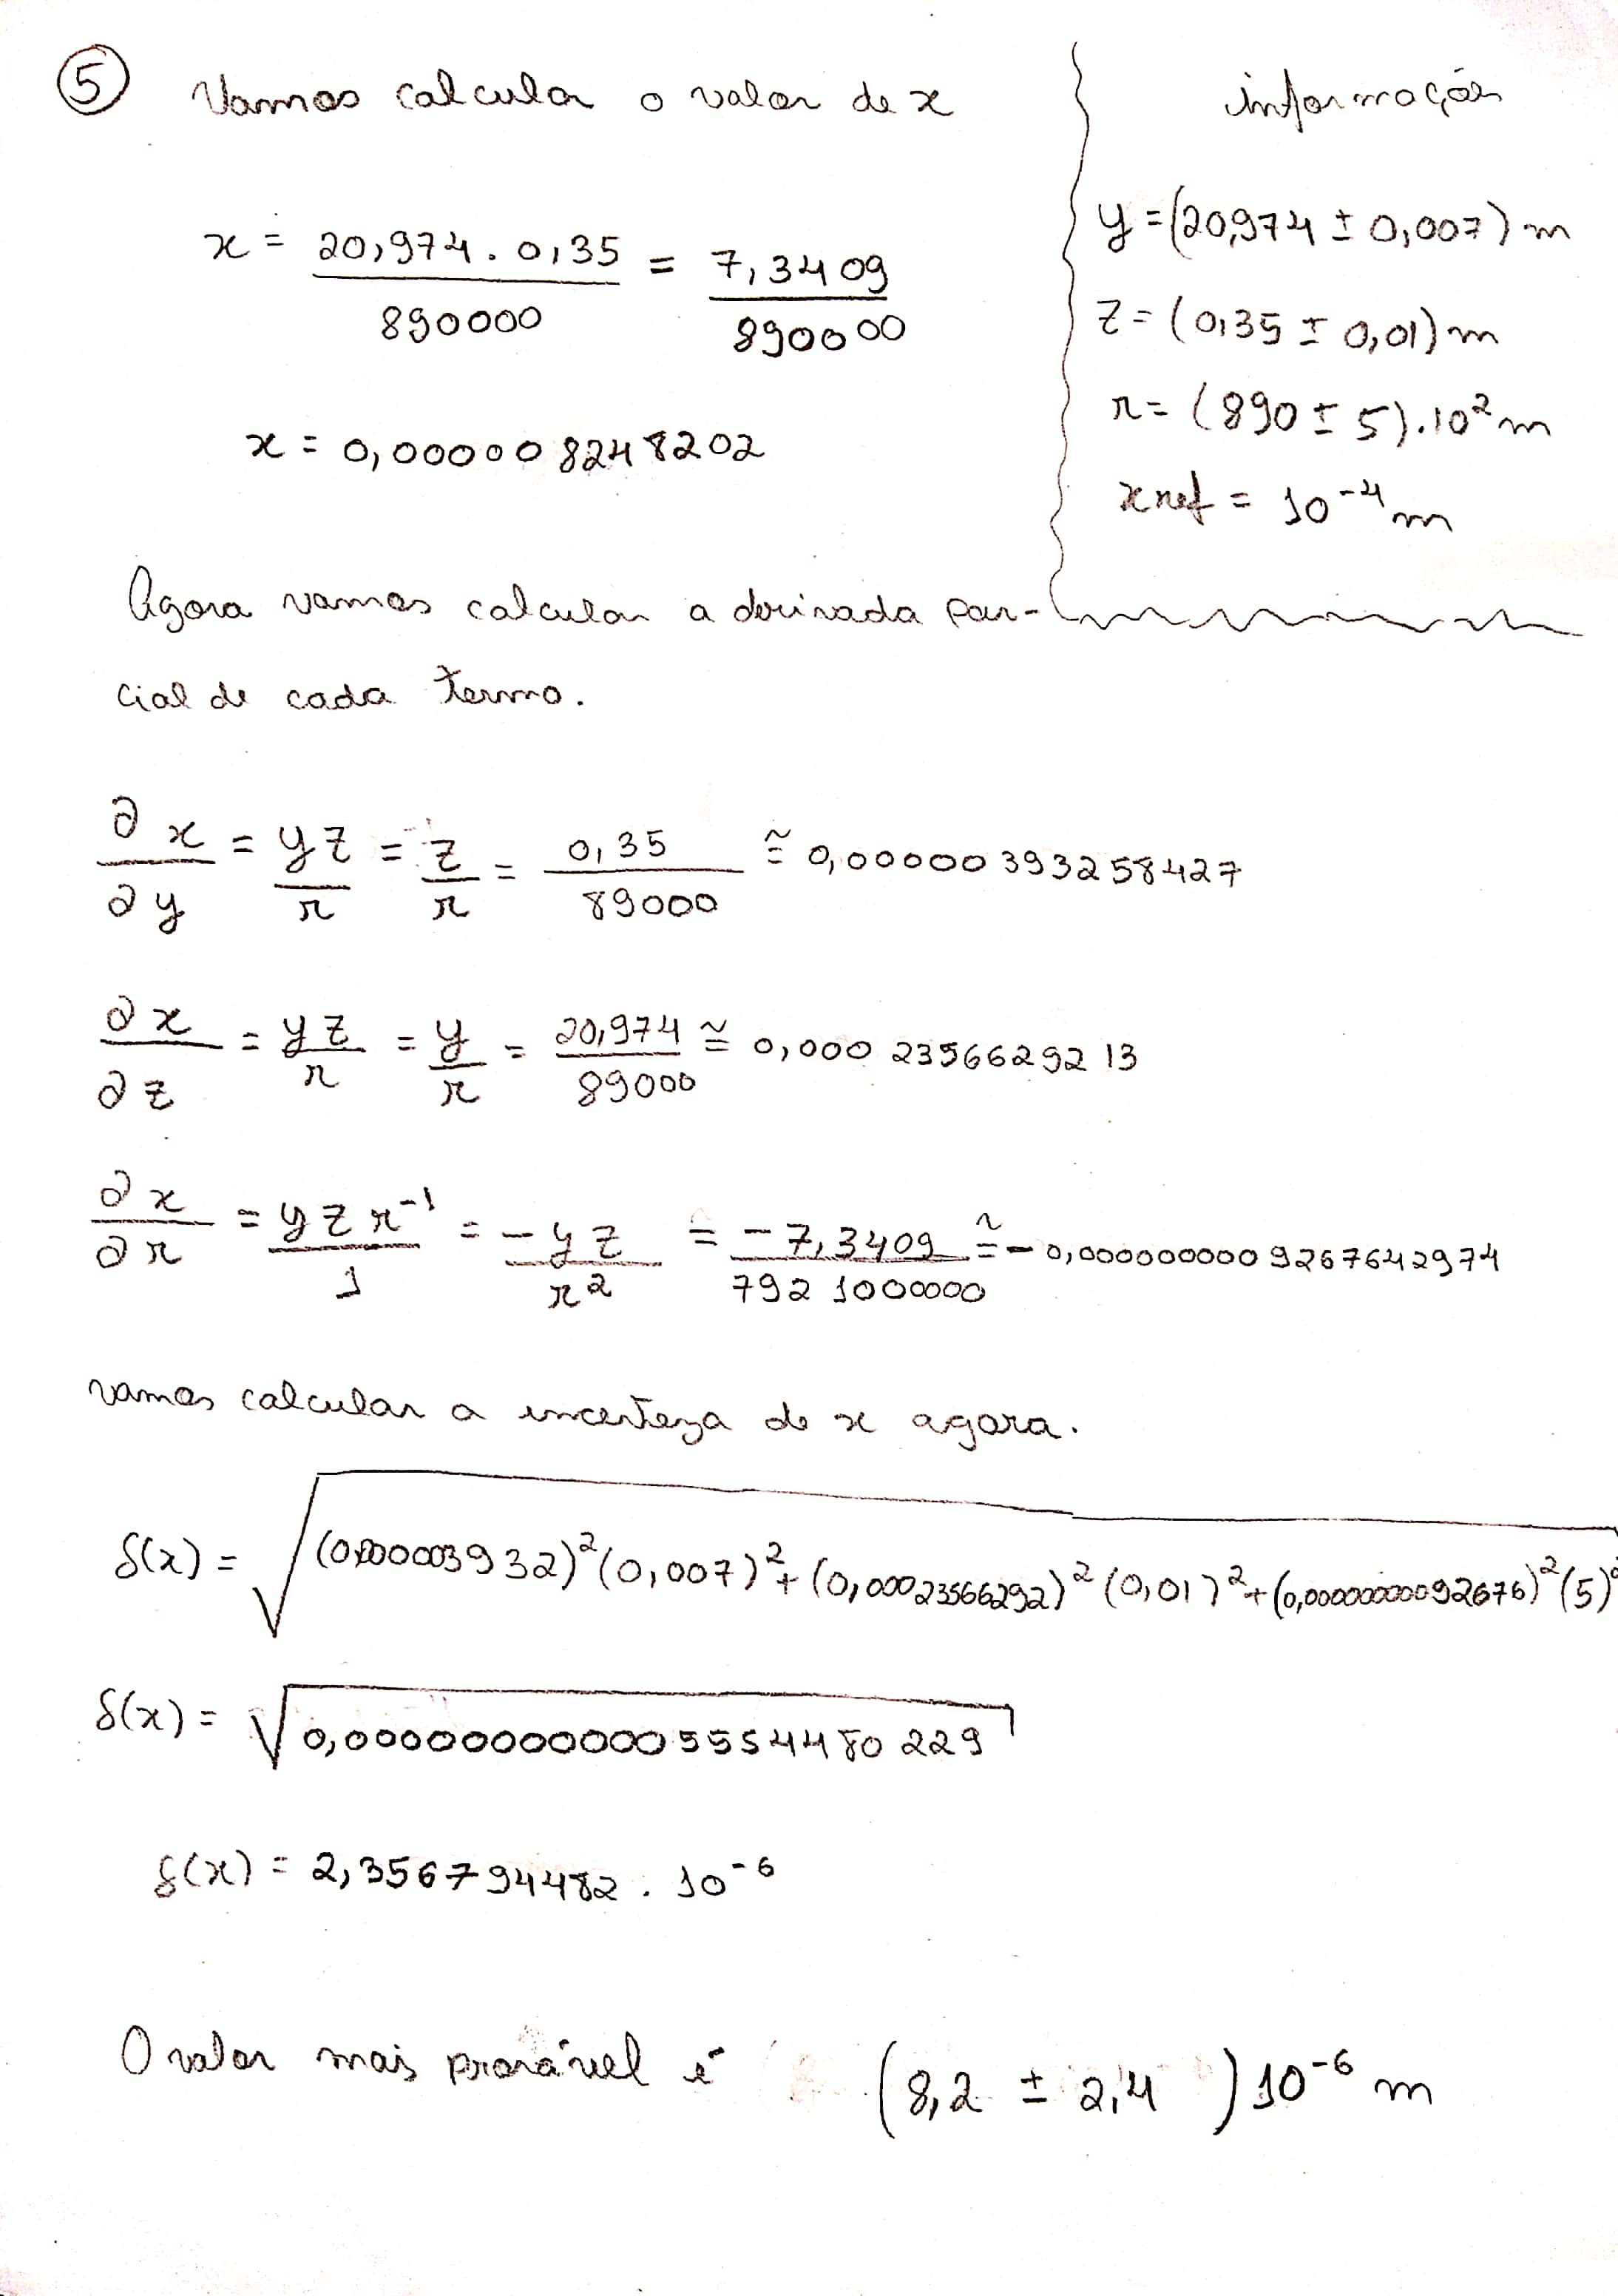 5 Vamos calcular o valor de x
informações
x = 20,974 . 0,35 / 890000 = 7,3409 / 890000
y = (20,974 ± 0,007) m
z = (0,35 ± 0,01) m
r = (890 ± 5).10² m
x ref = 10⁻⁴ m
x = 0,000008248202
Agora vamos calcular a derivada par-
cial de cada termo.
∂x/∂y = yz/r = z/r = 0,35/89000 ≅ 0,00000393258427
∂x/∂z = yz/r = y/r = 20,974/89000 ≅ 0,0002356629213
∂x/∂r = yzr⁻¹/1 = -yz/r² = -7,3409/7921000000 ≅ -0,0000000009267642974
vamos calcular a incerteza de x agora.
δ(x) = √(0,000003932)²(0,007)² + (0,00023566292)²(0,01)² + (0,00000000092676)²(5)²
δ(x) = √0,000000000005554480229
δ(x) = 2,356794482 . 10⁻⁶
O valor mais provável é (8,2 ± 2,4) 10⁻⁶ m